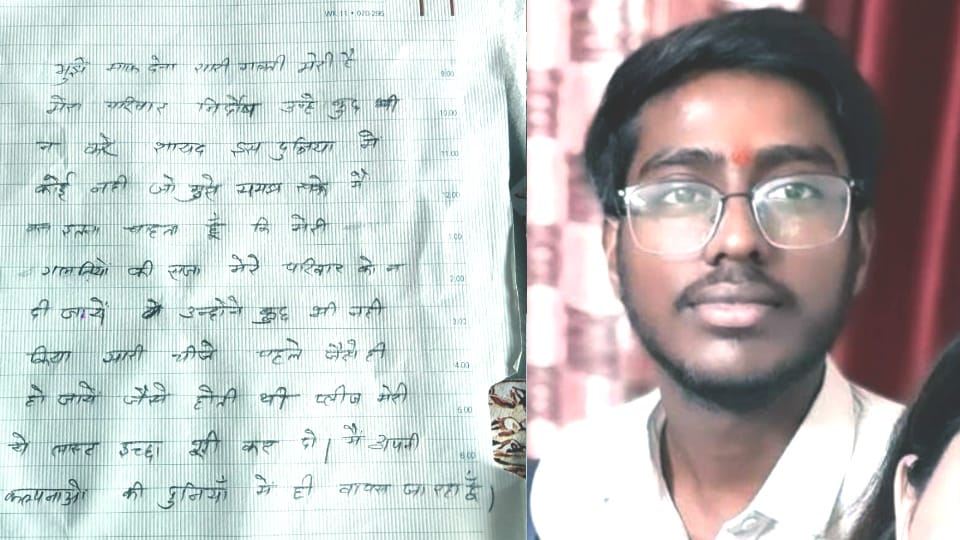 WK 11 • 070-295
मुझे माफ कर देना सारी गलती मेरी है
मेरा परिवार निर्दोष उन्हे कुछ भी
न करे शायद इस दुनिया मे
कोई नही जो मुझे समझ सके मै
बस इतना चाहता हूँ कि मेरी
गलतियों की सजा मेरे परिवार को न
दी जाये उन्होने कुछ भी नही
किया सारी चीजे पहले जैसे ही
हो जाये जैसे होती थी प्लीज मेरी
ये लास्ट इच्छा पूरी कर दो । मैं अपनी
कल्पनाओ की दुनियाँ में ही वापस जा रहा हूँ ।
9.00
10.00
11.00
1.00
2.00
3.00
4.00
5.00
6.00